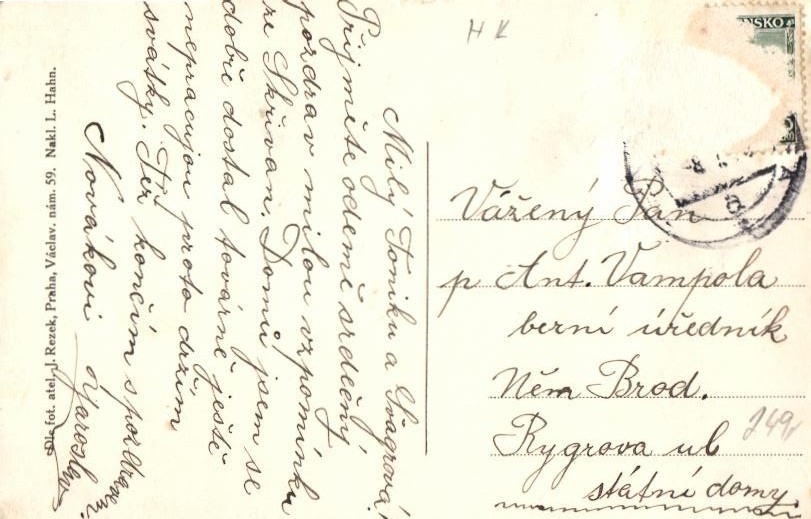 Milý Toniku a Švagrová!
Přijměte odemě srdečný
pozdrav milou vzpomínku
ze Skřivan. Domů jsem se
dobře dostal továrně ještě
nepracujou proto držím
svátky. Též končím s pozdravem!
Novákovi Jaroslav
Dle fot. atel. J. Rezek, Praha, Václav. nám. 59. Nakl. L. Hahn.
HK
NSKO
Vážený Pan
p Ant. Vampola
berní úředník
Něm Brod.
Rygrova ul
státní domy